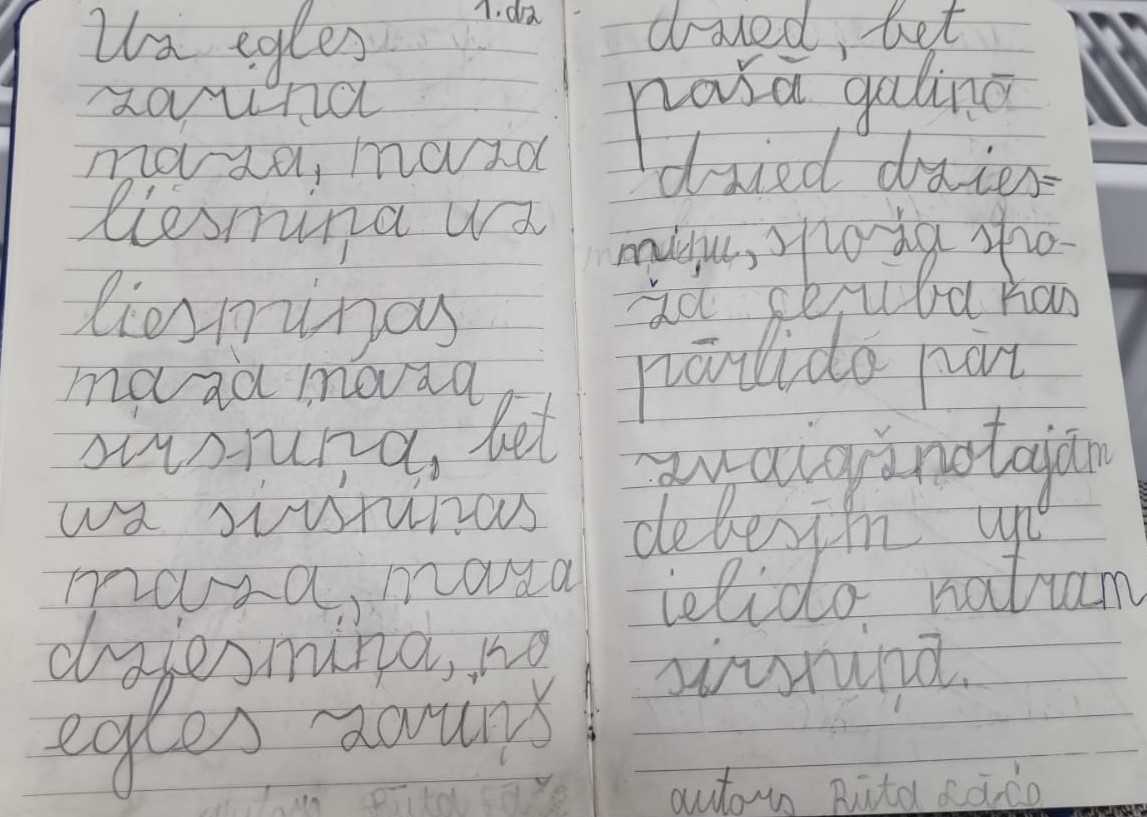 1.dz
Uz egles
zariņa
maza, maza
liesmiņa uz
liesmiņas
maza maza
sirsniņa, bet
uz sirsniņas
maza, maza
dziesmiņa, ko
egles zariņš
dzied, bet
pašā galiņā
dzied dzies=
miņu, spoža spo-
ža cerība kas
pārlido pār
zvaigžņotajām
debesīm un
ielido katram
sirsniņā.
autors Rūta